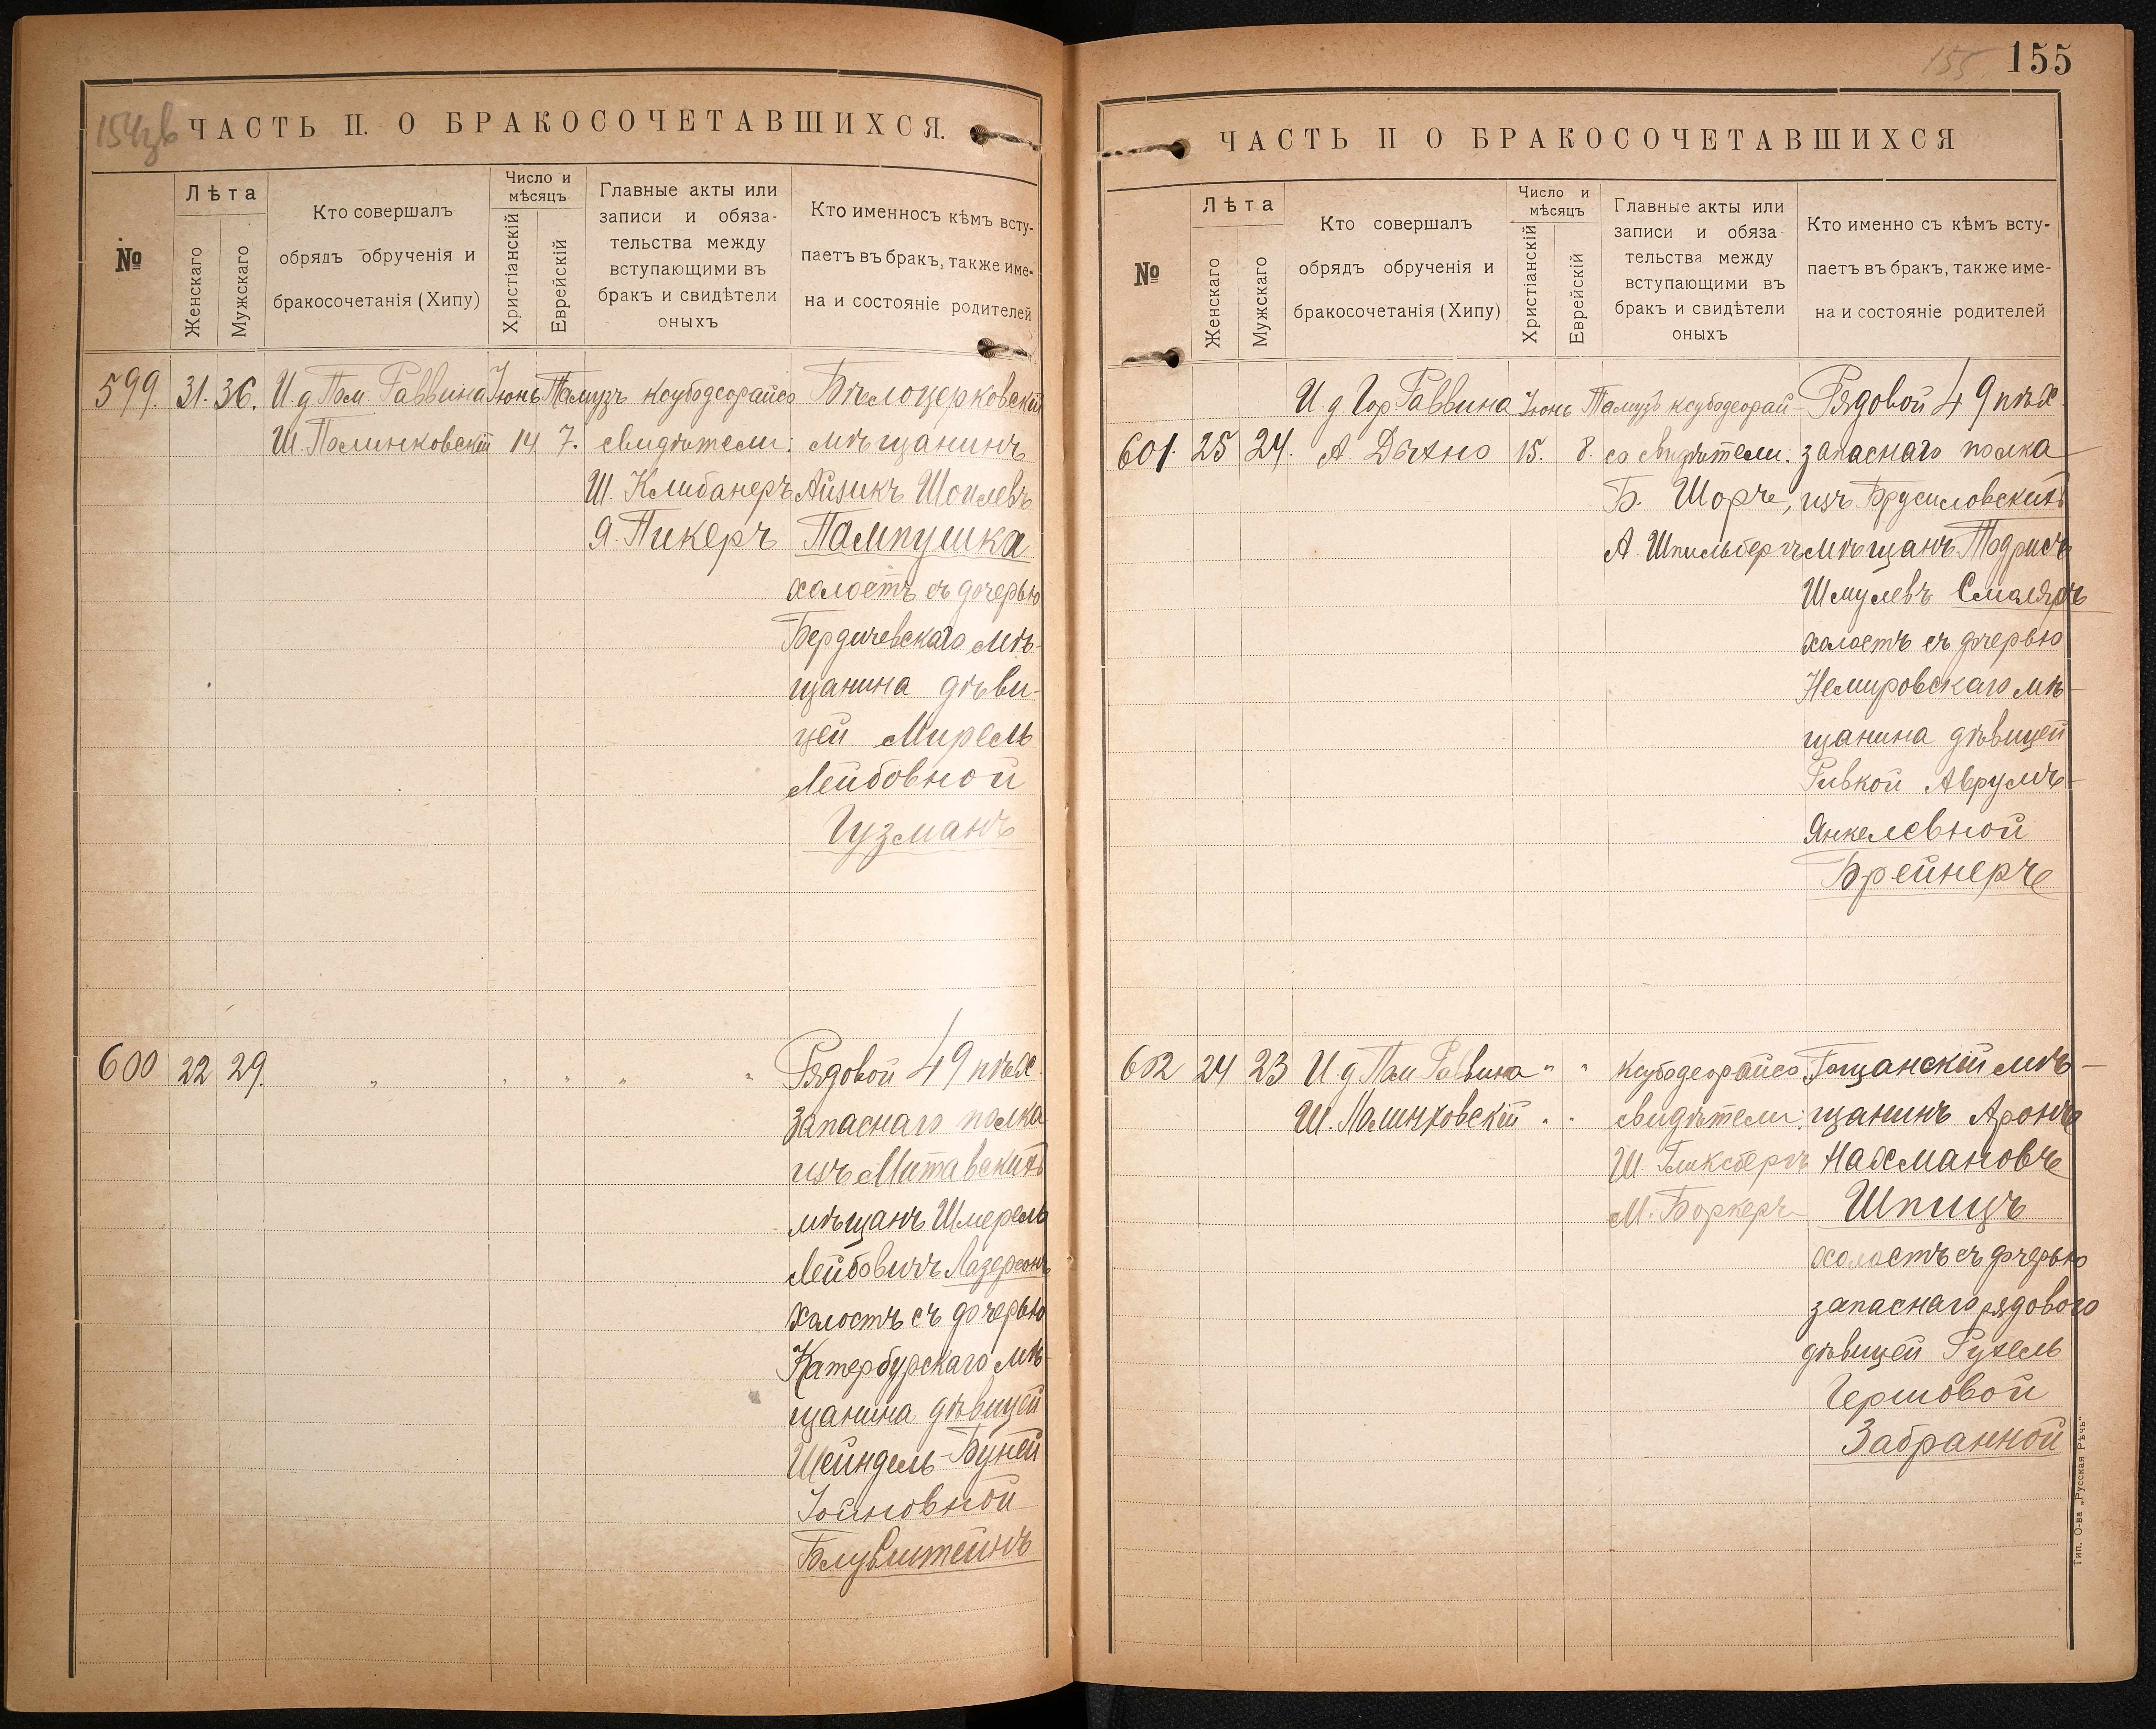 154зв
ЧАСТЬ II. О БРАКОСОЧЕТАВШИХСЯ.
№
Лѣта
Женскаго
Мужскаго
Кто совершалъ
обрядъ обрученія и
бракосочетанія (Хипу)
Число и
мѣсяцъ
Христіанскій
Еврейскій
Главные акты или
записи и обяза-
тельства между
вступающими въ
бракъ и свидѣтели
оныхъ
Кто именносъ кѣмъ всту-
паетъ въ бракъ, также име-
на и состояніе родителей
599. 31. 36. И.д Пом. Раввина Іюнь Тамузъ ксубодеорайсо Бѣлоцерковскій
Ш. Полинковскій 14 7. свидѣтели: мѣщанинъ
Ш. Клибанеръ Айзикъ Шоилевъ
Я. Пикеръ Пампушка
холостъ съ дочерью
Бердичевскаго мѣ-
щанина дѣви-
цей Мирель
Лейбовной
Гузманъ
600 22 29. " " " " " Рядовой 49 пѣх.
Запаснаго полка
изъ Митавскихъ
мѣщанъ Шмерель
Лейбовичъ Лазерсонъ
холостъ съ дочерью
Катербурскаго мѣ-
щанина дѣвицей
Шейндель-Буней
Іойновной
Блувштейнъ
155 155
ЧАСТЬ II О БРАКОСОЧЕТАВШИХСЯ
№
Лѣта
Женскаго
Мужскаго
Кто совершалъ
обрядъ обрученія и
бракосочетанія (Хипу)
Число и
мѣсяцъ
Христіанскій
Еврейскій
Главные акты или
записи и обяза-
тельства между
вступающими въ
бракъ и свидѣтели
оныхъ
Кто именно съ кѣмъ всту-
паетъ въ бракъ, также име-
на и состояніе родителей
И д Гор Раввина Іюнь Тамузъ ксубодеорай- Рядовой 49 пѣх.
601. 25 24. А. 15. 8. со свидѣтели: запаснаго полка
Б. Шоръ, изъ Брусиловскихъ
А. Шпильбергъ мѣщанъ Тодрисъ
Шмулевъ Смоляръ
холостъ съ дочерью
Немировскаго мѣ-
щанина дѣвицей
Ривкой Аврумъ-
Янкелевной
Брейнеръ
602 24 23 И д Пом. Раввина " " Ксубодеорайсо Гощанскій мѣ-
Ш. Полинковскій " " свидѣтели: щанинъ Аронъ
Ш. Гликсбергъ Нахмановъ
М. Боркеръ Шпицъ
холостъ съ дочерью
запаснаго рядового
дѣвицей Рухель
Гершовой
Забранной
Тип. О-ва „Русская Рѣчь"